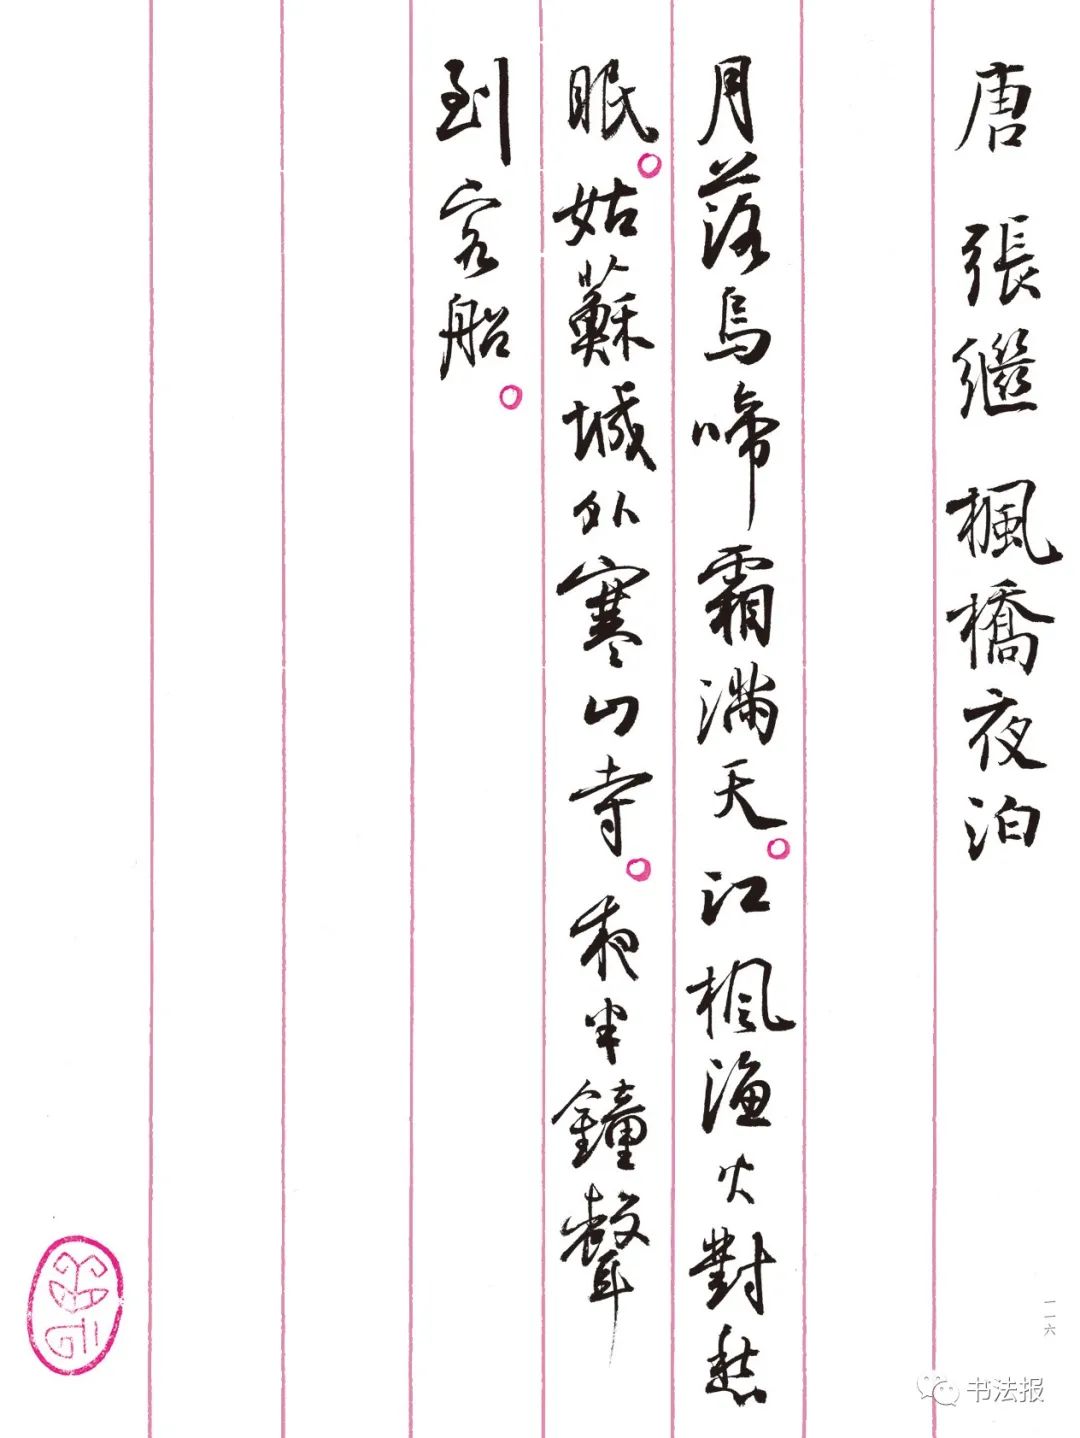 唐 張繼 楓橋夜泊
月落烏啼霜滿天。江楓漁火對愁
眠。姑蘇城外寒山寺。夜半鐘聲
到客船。
一一六
书法报